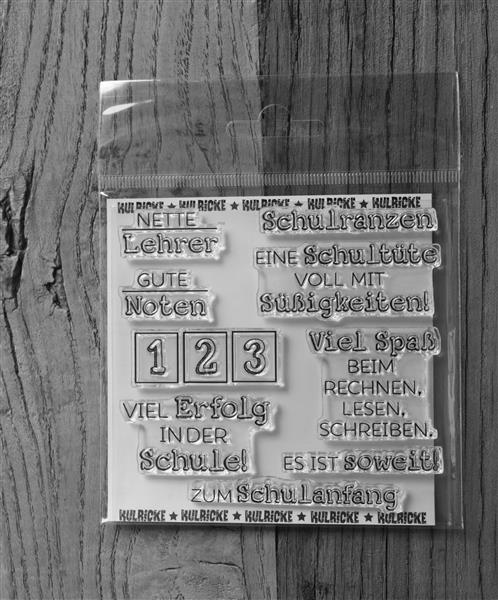 KULRICKE ★ KULRICKE ★ KULRICKE ★ KULRICKE ★ KULRICKE
NETTE
Lehrer
GUTE
Noten
1 2 3
VIEL Erfolg
IN DER
Schule!
Schulranzen
EINE Schultüte
VOLL MIT
Süßigkeiten!
Viel Spaß
BEIM
RECHNEN,
LESEN,
SCHREIBEN.
ES IST soweit!
ZUM Schulanfang
KULRICKE ★ KULRICKE ★ KULRICKE ★ KULRICKE ★ KULRICKE